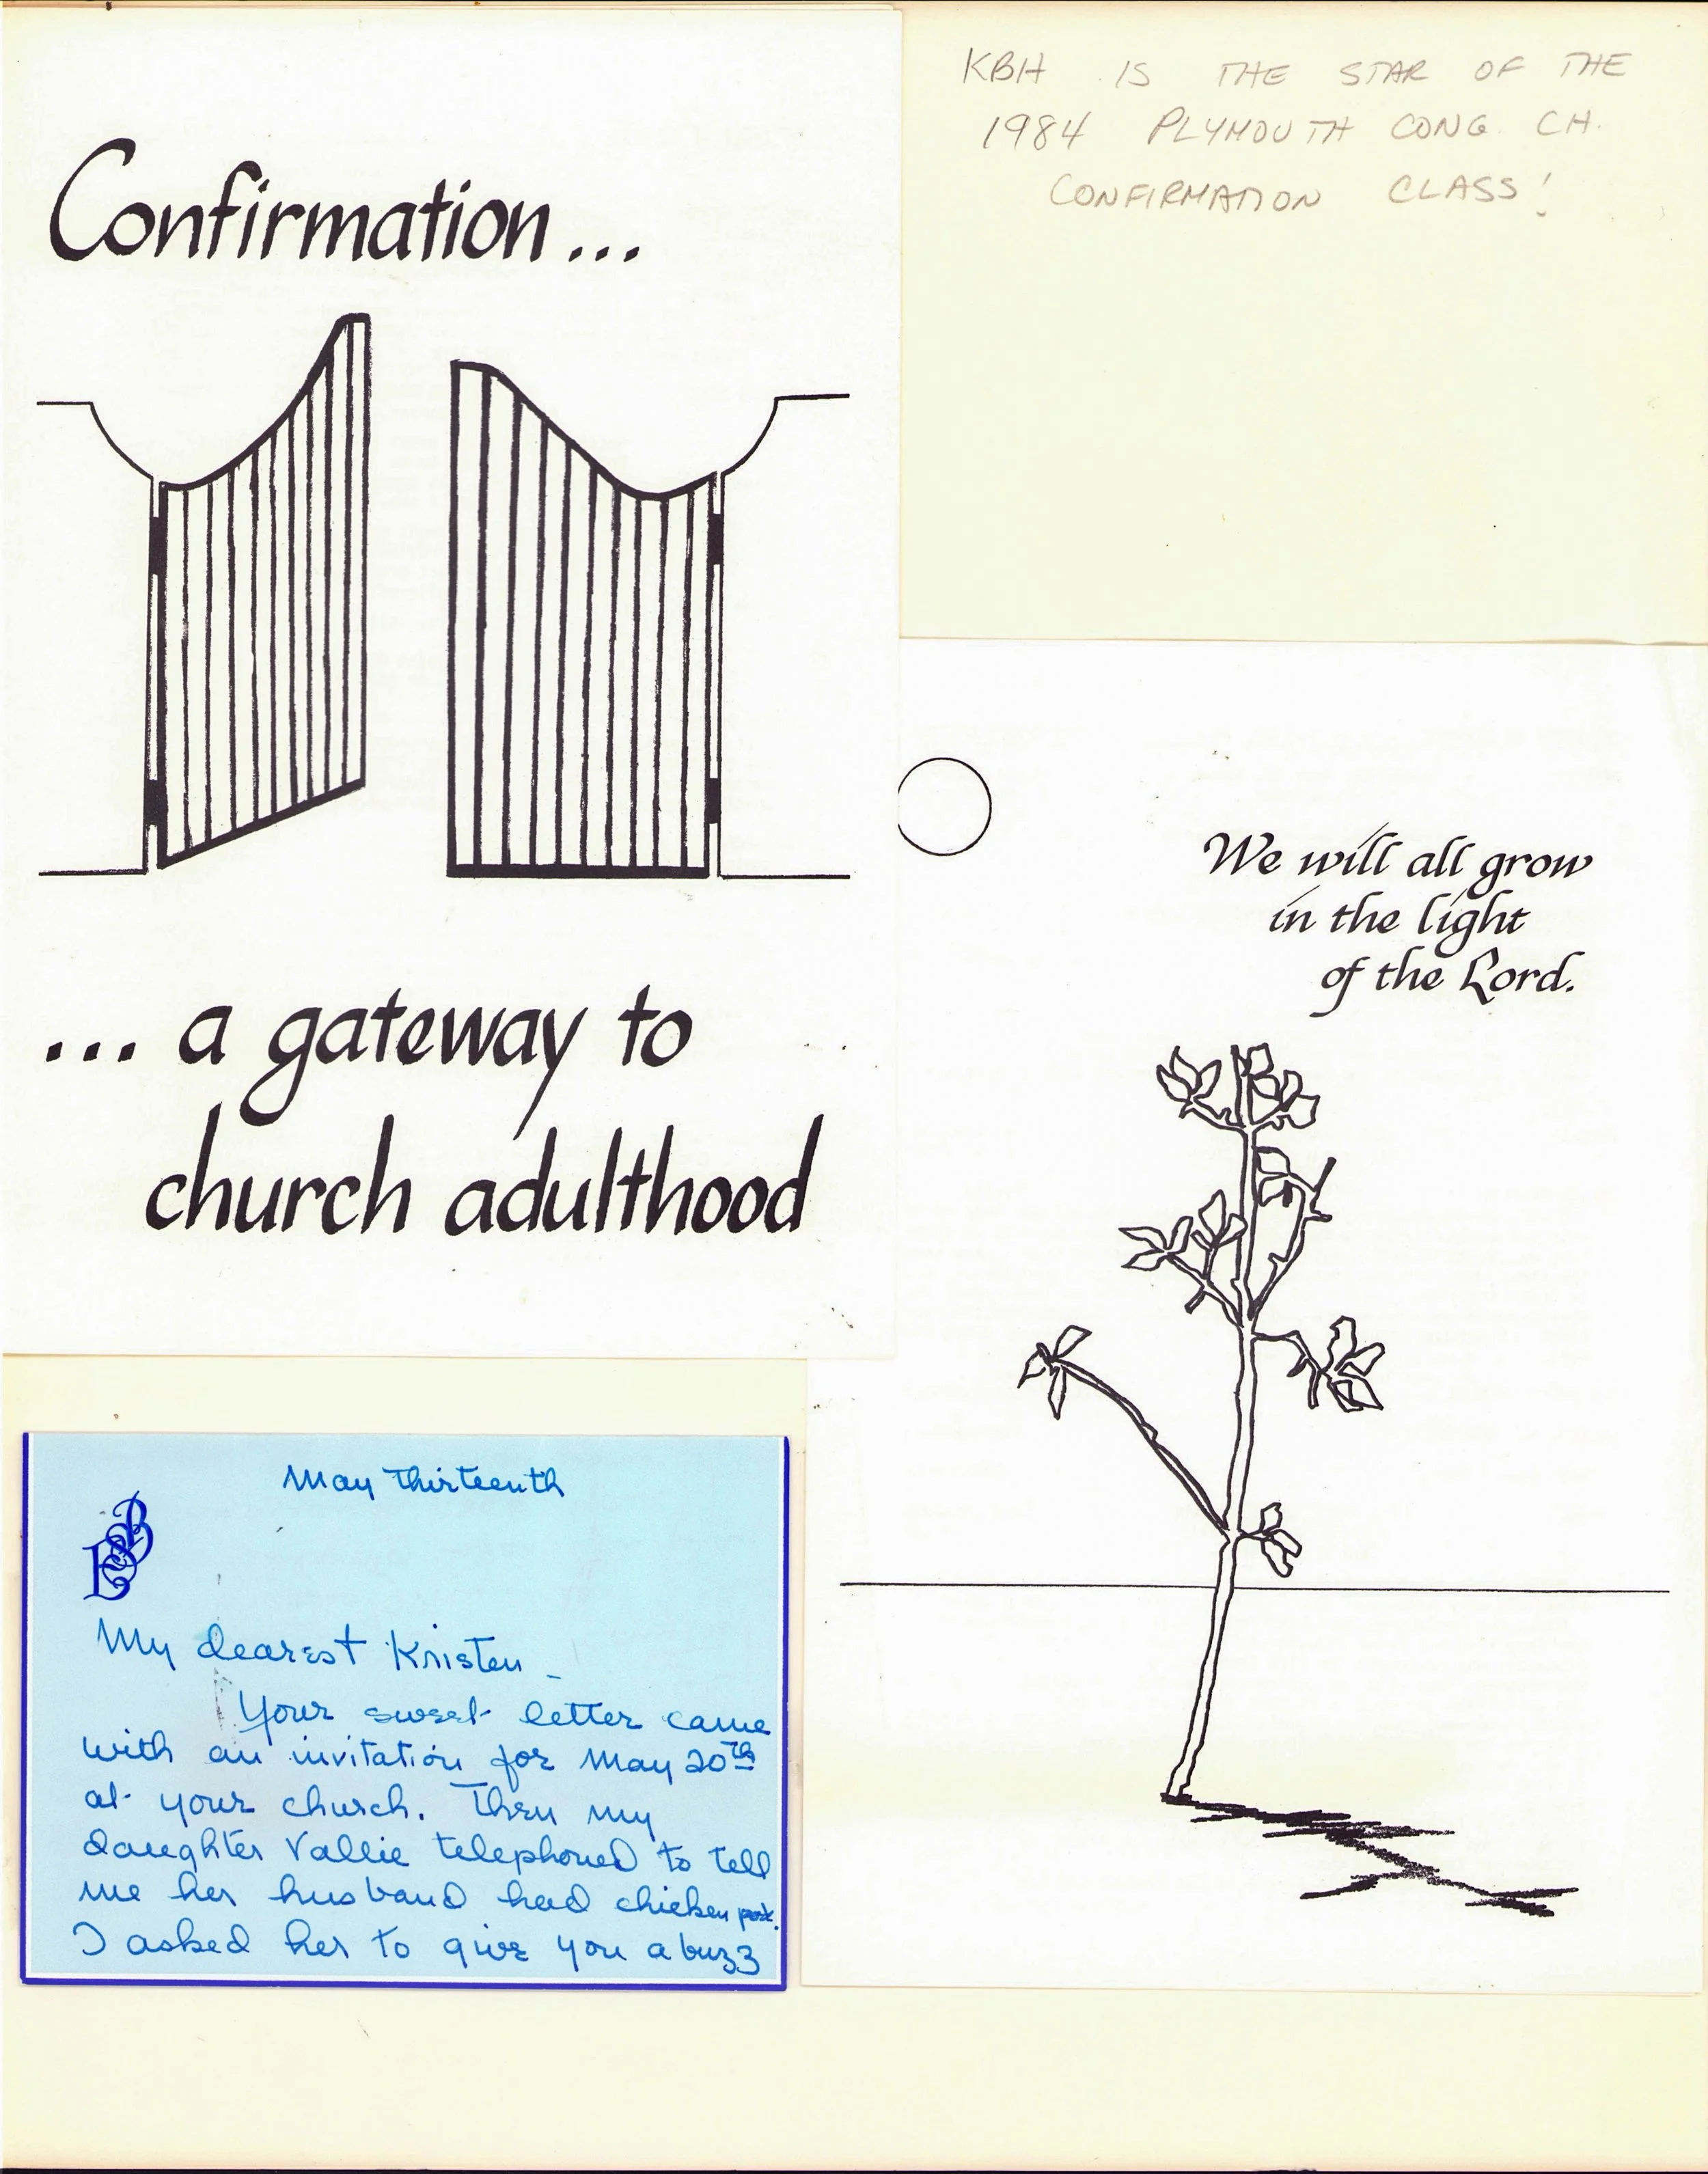 Confirmation...
... a gateway to
church adulthood
KBH IS THE STAR OF THE
1984 PLYMOUTH CONG. CH.
CONFIRMATION CLASS!
We will all grow
in the light
of the Lord.
May Thirteenth
My dearest Kristen _
Your sweet letter came
with an invitation for May 20th
at your church. Then my
daughter Vallie telephoned to tell
me her husband had chicken pox.
I asked her to give you a buzz